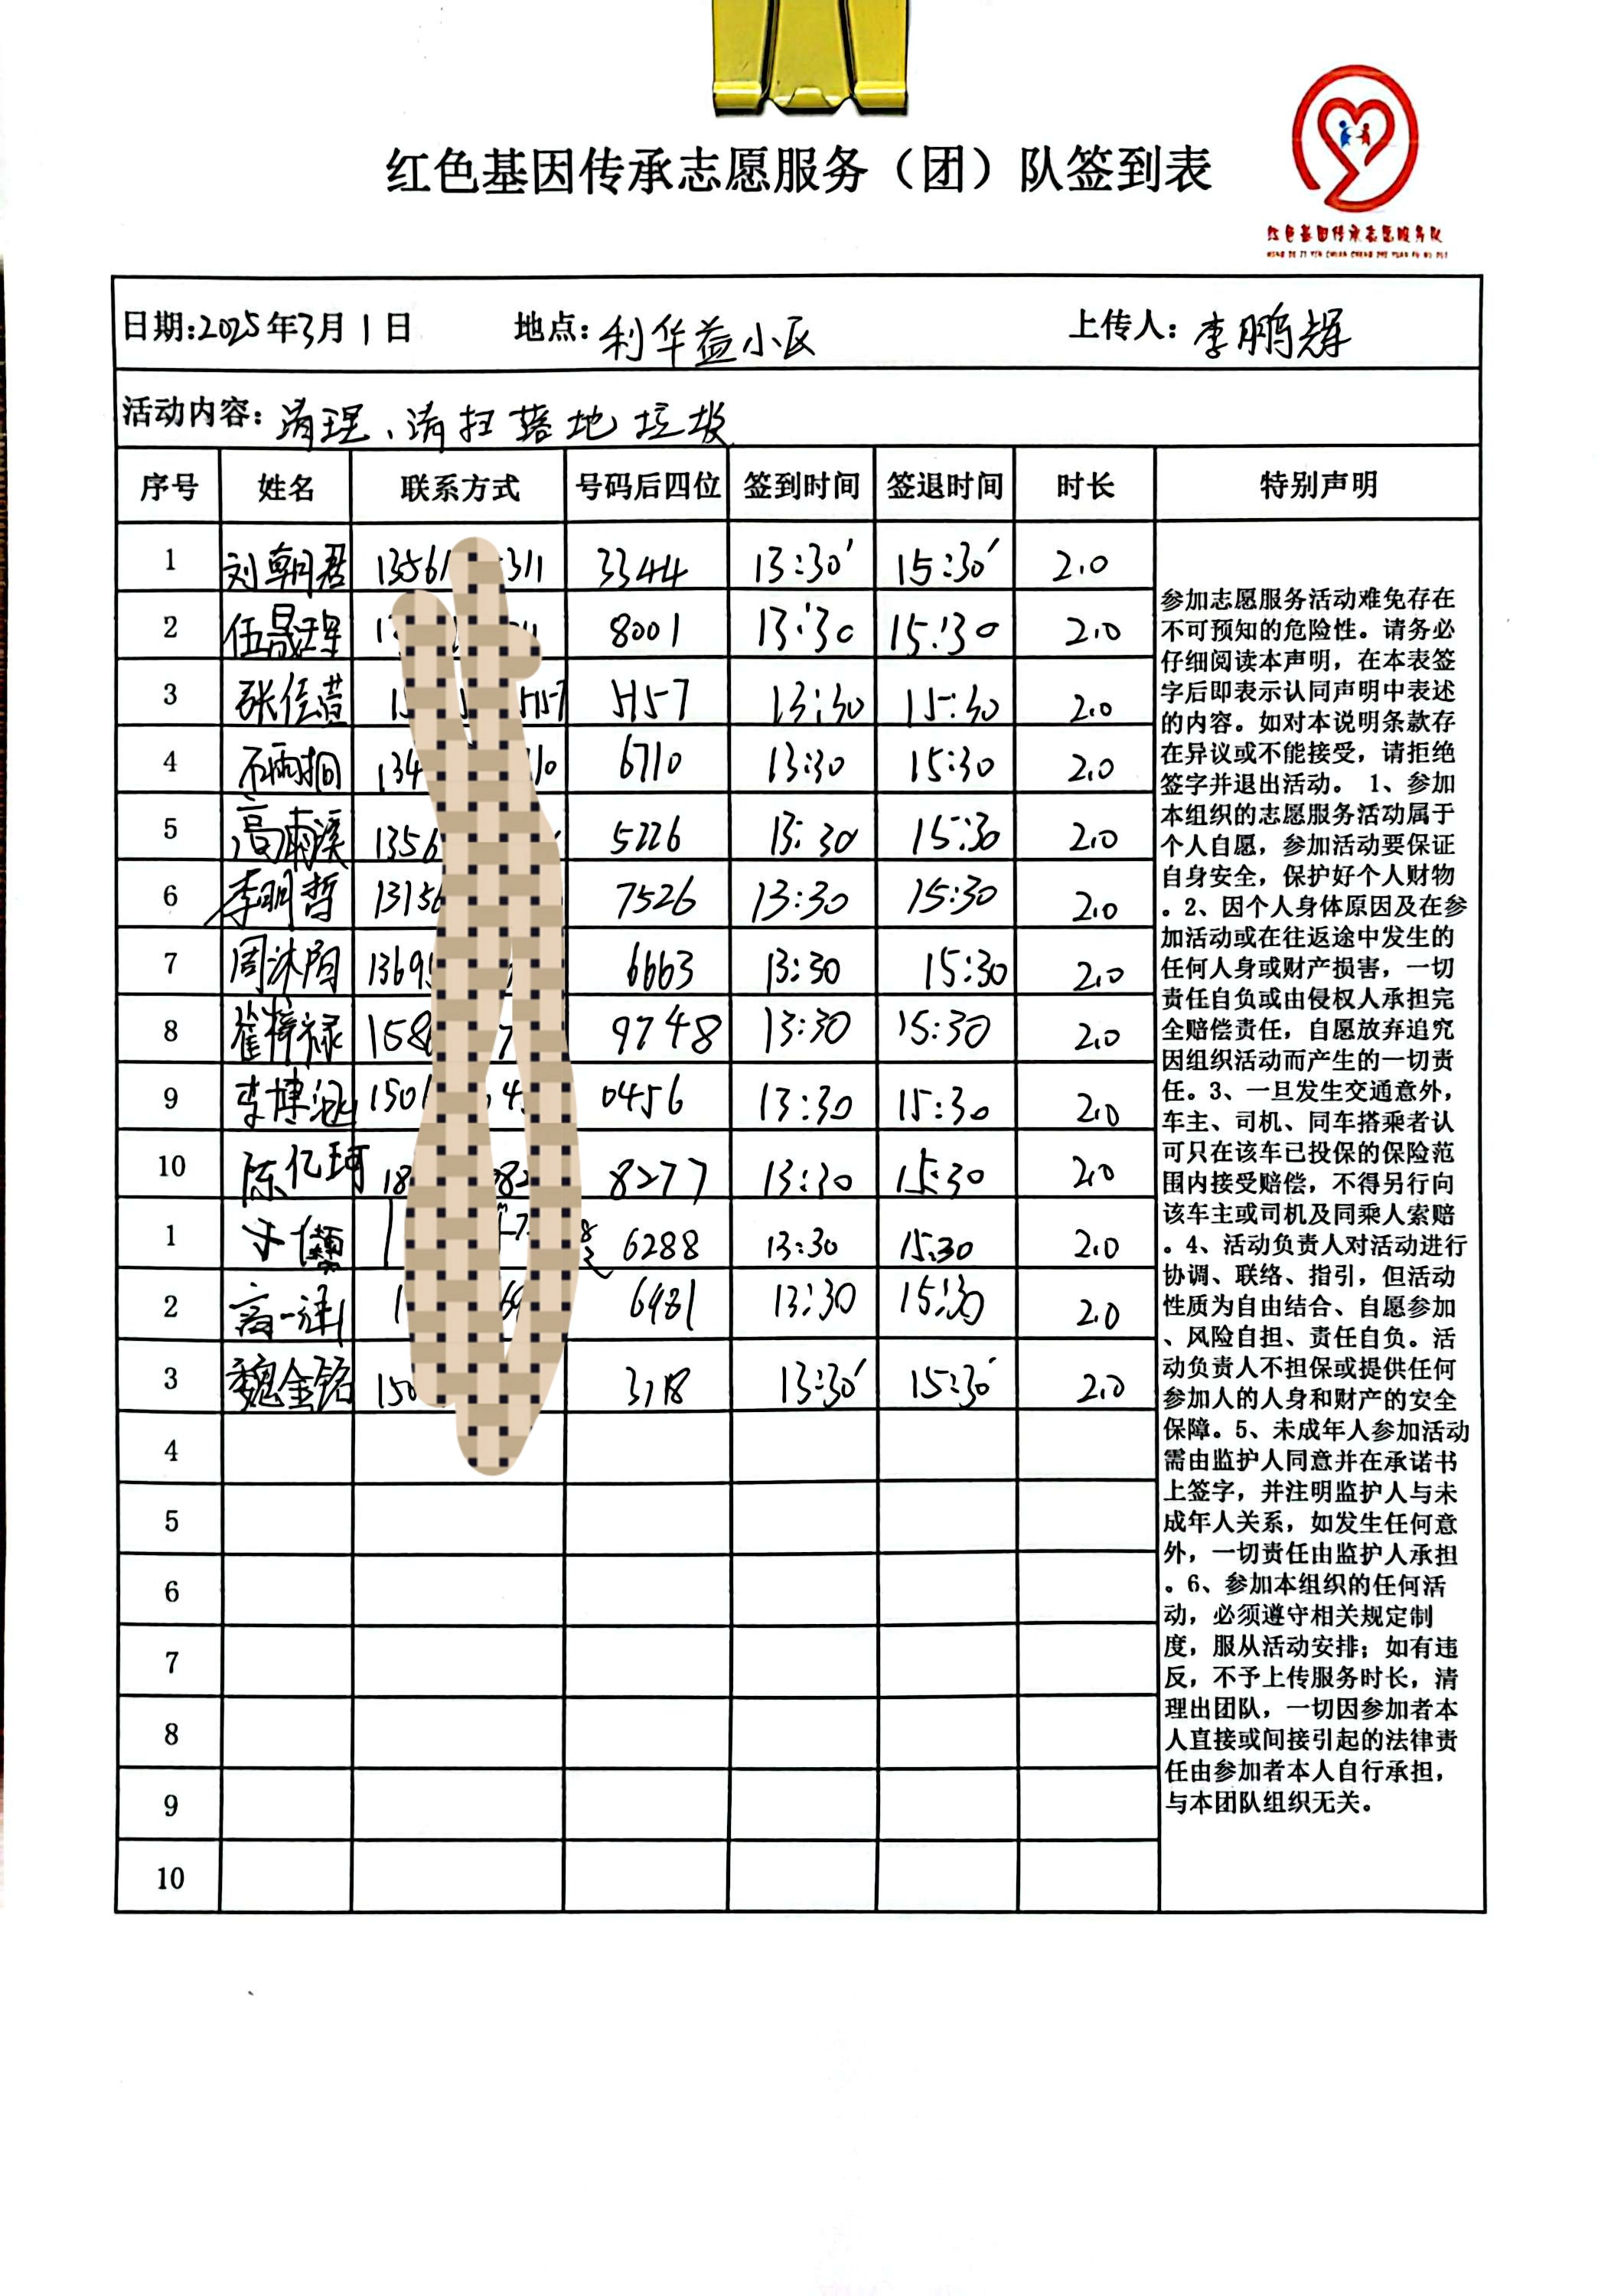 红色基因传承志愿服务（团）队签到表
红色基因传承志愿服务队
HONG SE JI YIN CHUAN CHENG ZHI YUAN FU WU DUI
日期:2025年3月1日 地点:利华益小区 上传人:李鹏辉
活动内容:清理、清扫落地垃圾
序号 姓名 联系方式 号码后四位 签到时间 签退时间 时长 特别声明
1 刘朝君 13561 311 3344 13:30' 15:30' 2.0
2 8001 13:30 15:30 2.0
3 张佳萱 5157 5157 13:30 15:30 2.0
4 134 10 6710 13:30 15:30 2.0
5 高雨溪 1356 5226 13:30 15:30 2.0
6 李明哲 13156 7526 13:30 15:30 2.0
7 周沐阳 1369 6663 13:30 15:30 2.0
8 崔梓禄 158 7 9748 13:30 15:30 2.0
9 李博涵 1501 4 0456 13:30 15:30 2.0
10 陈亿珂 18 82 8277 13:30 15:30 2.0
1 6288 13:30 15:30 2.0
2 高一 1 6 6981 13:30 15:30 2.0
3 魏金铭 150 3718 13:30' 15:30' 2.0
4
5
6
7
8
9
10
参加志愿服务活动难免存在
不可预知的危险性。请务必
仔细阅读本声明，在本表签
字后即表示认同声明中表述
的内容。如对本说明条款存
在异议或不能接受，请拒绝
签字并退出活动。 1、参加
本组织的志愿服务活动属于
个人自愿，参加活动要保证
自身安全，保护好个人财物
。2、因个人身体原因及在参
加活动或在往返途中发生的
任何人身或财产损害，一切
责任自负或由侵权人承担完
全赔偿责任，自愿放弃追究
因组织活动而产生的一切责
任。3、一旦发生交通意外，
车主、司机、同车搭乘者认
可只在该车已投保的保险范
围内接受赔偿，不得另行向
该车主或司机及同乘人索赔
。4、活动负责人对活动进行
协调、联络、指引，但活动
性质为自由结合、自愿参加
、风险自担、责任自负。活
动负责人不担保或提供任何
参加人的人身和财产的安全
保障。5、未成年人参加活动
需由监护人同意并在承诺书
上签字，并注明监护人与未
成年人关系，如发生任何意
外，一切责任由监护人承担
。6、参加本组织的任何活
动，必须遵守相关规定制
度，服从活动安排；如有违
反，不予上传服务时长，清
理出团队，一切因参加者本
人直接或间接引起的法律责
任由参加者本人自行承担，
与本团队组织无关。